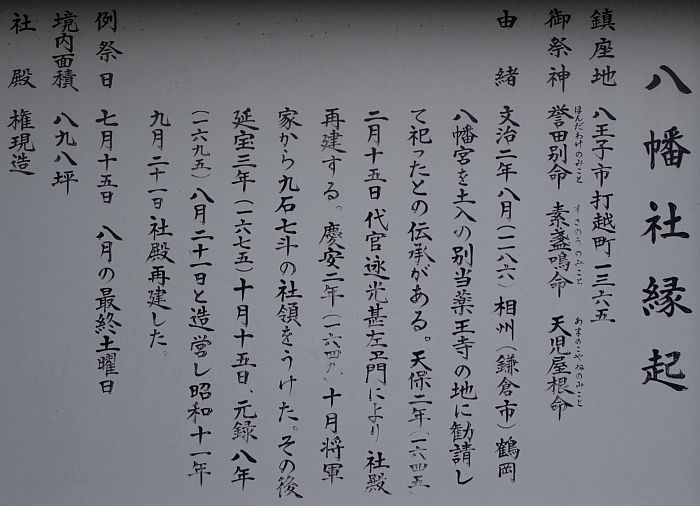 八幡社縁起
鎮座地　八王子市打越町一三六五
御祭神　誉田別命　素盞鳴命　天児屋根命
ほんだわけのみこと　すさのうのみこと　あまのこやねのみこと
由緒　文治二年八月(一一八六)相州(鎌倉市)鶴岡
八幡宮を土入の別当薬王寺の地に勧請し
て祀ったとの伝承がある。天保二年(一六四五)
二月十五日代官泳光甚左卫門により社殿
再建する。慶安二年(一六四九)十月将軍
家から九石七斗の社領をうけた。その後
延宝三年(一六七五)十月十五日、元録八年
(一六九五)八月二十一日と造営し昭和十一年
九月二十一日社殿再建した。
例祭日　七月十五日　八月の最終土曜日
境内面積　八九八坪
社殿　権現造